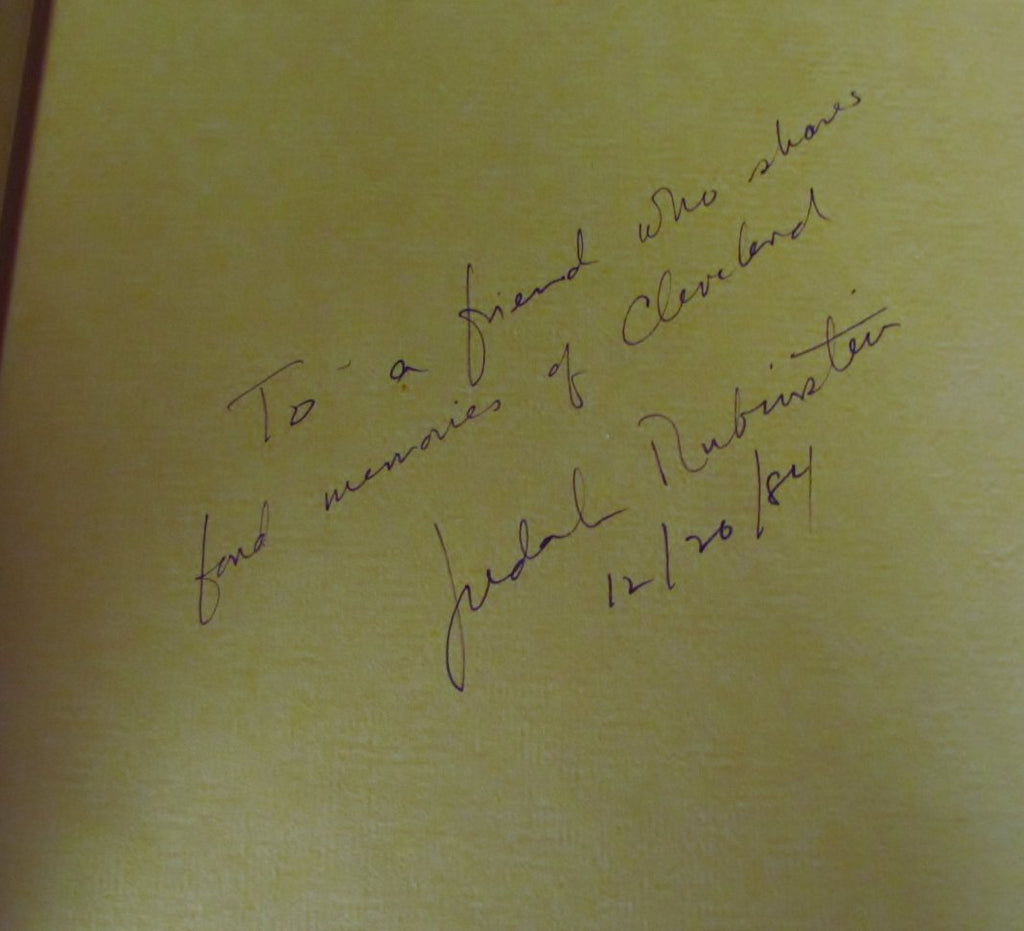 To a friend who shares
fond memories of Cleveland
Judah Rubinstein
12/20/84